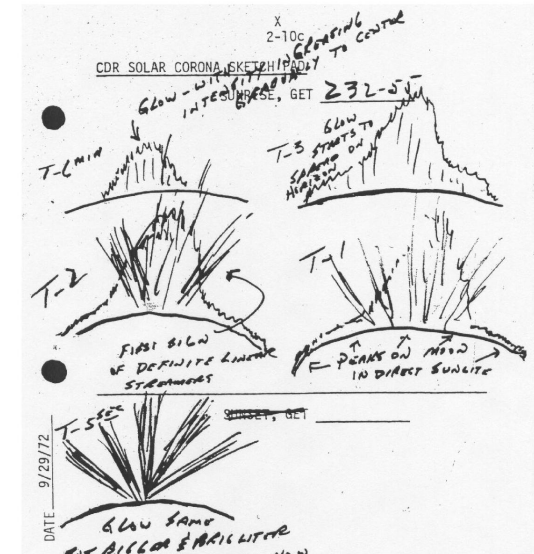 X
2-10c
CDR SOLAR CORONA SKETCH PAD
GLOW - WITH INCREASING
INTENSITY TO CENTER
SUNRISE, GET 232-55
T-6 MIN
T-3
GLOW
STARTS TO
SPREAD ON
HORIZON
T-2
T-1
FIRST SIGN
OF DEFINITE LINEAR
STREAMERS
PEAKS ON MOON
IN DIRECT SUNLITE
SUNSET, GET
T-5 SEC
DATE 9/29/72
GLOW SAME
BUT BIGGER & BRIGHTER